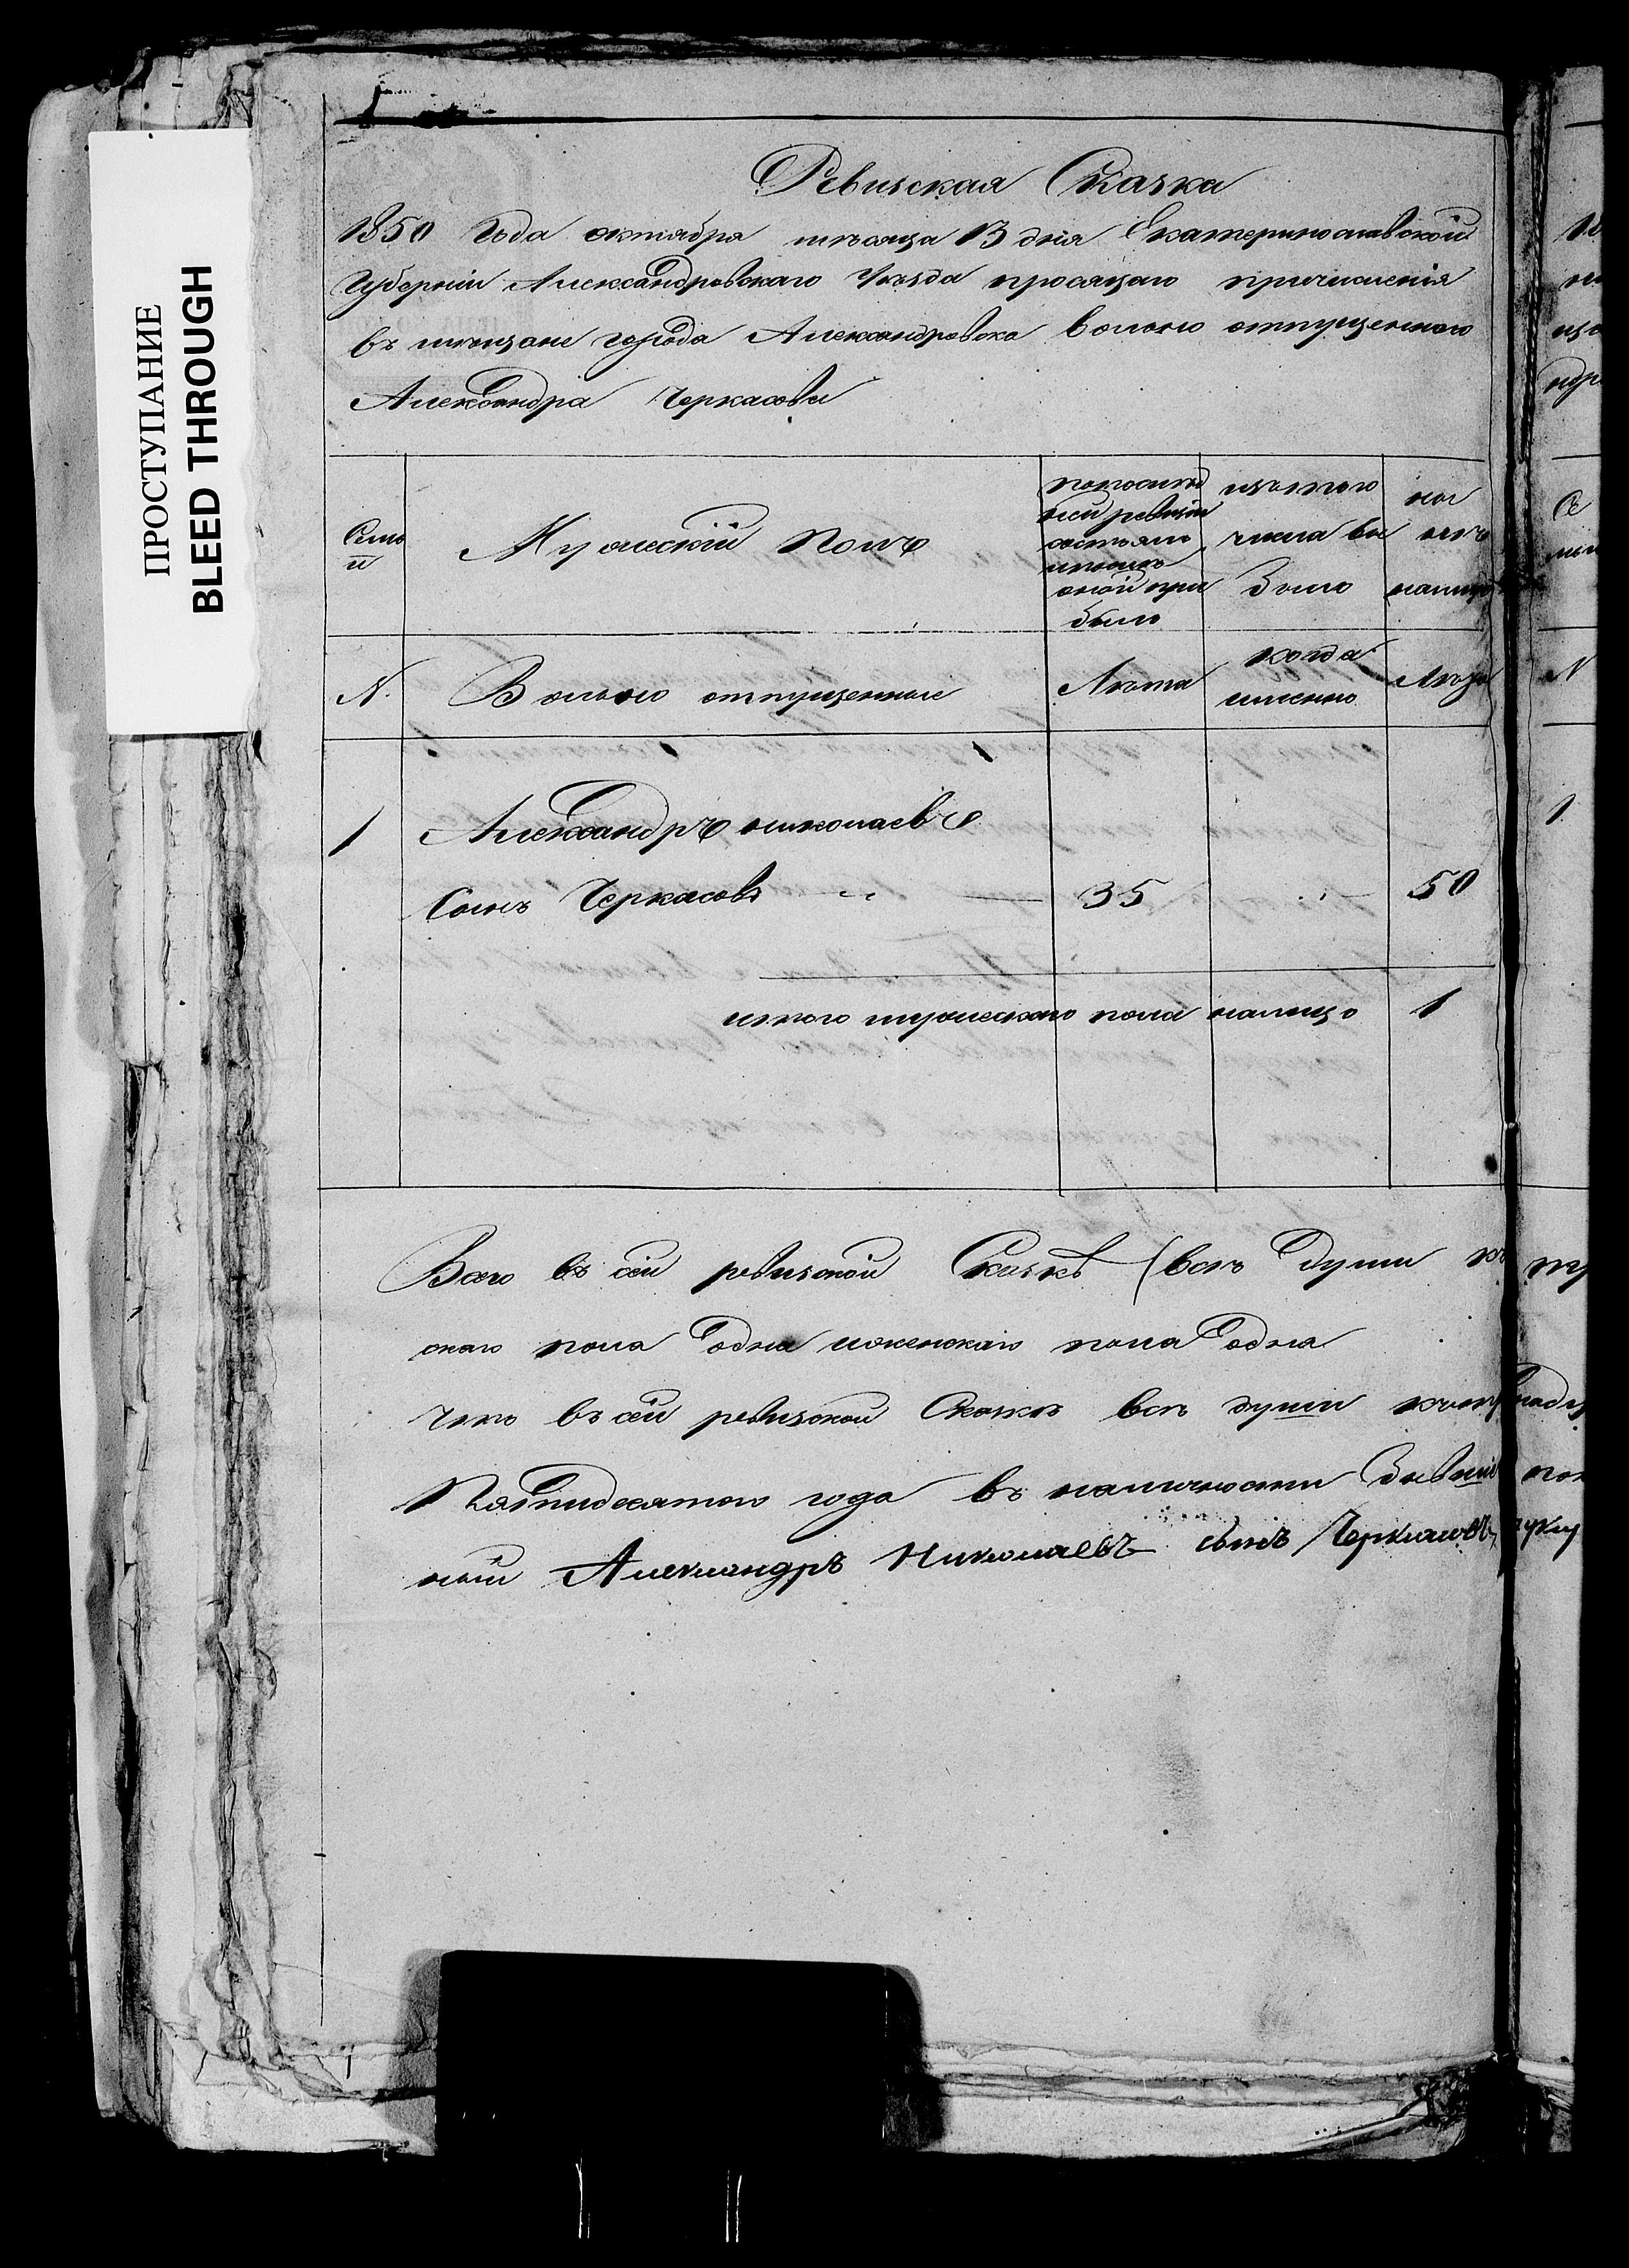 ПРОСТУПАНИЕ
BLEED THROUGH
Ревизская Сказка
1850 Года октября месяца 13 дня Екатеринославской
Губерніи Александровскаго Уезда просящаго причисленія
въ мещане города Александровска вольно отпущеннаго
Александра Черкасова
Семьи
Мужескій полъ
по последней ревизіи состояло и после оной прибыло
изъ того числа выбыло
ныне налицо
N.
Вольно отпущенные
Лета
когда именно
Лета
1
Александръ николаевъ
Сынъ Черкасовъ
35
50
итого мужескаго пола налицо 1
Всего въ сей ревизской Сказкѣ (всѣ души
скаго пола одна и женскаго пола одна
что въ сей ревизской Сказкѣ всѣ души
Пятидесятого года въ наличности
ный Александръ Николаевъ сынъ Черкасовъ
N
1